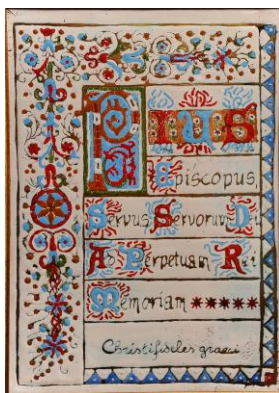 Pius
Episcopus
Servus Servorum Dei
Ad Perpetuam Rei
Memoriam *****
Christifideles graeci